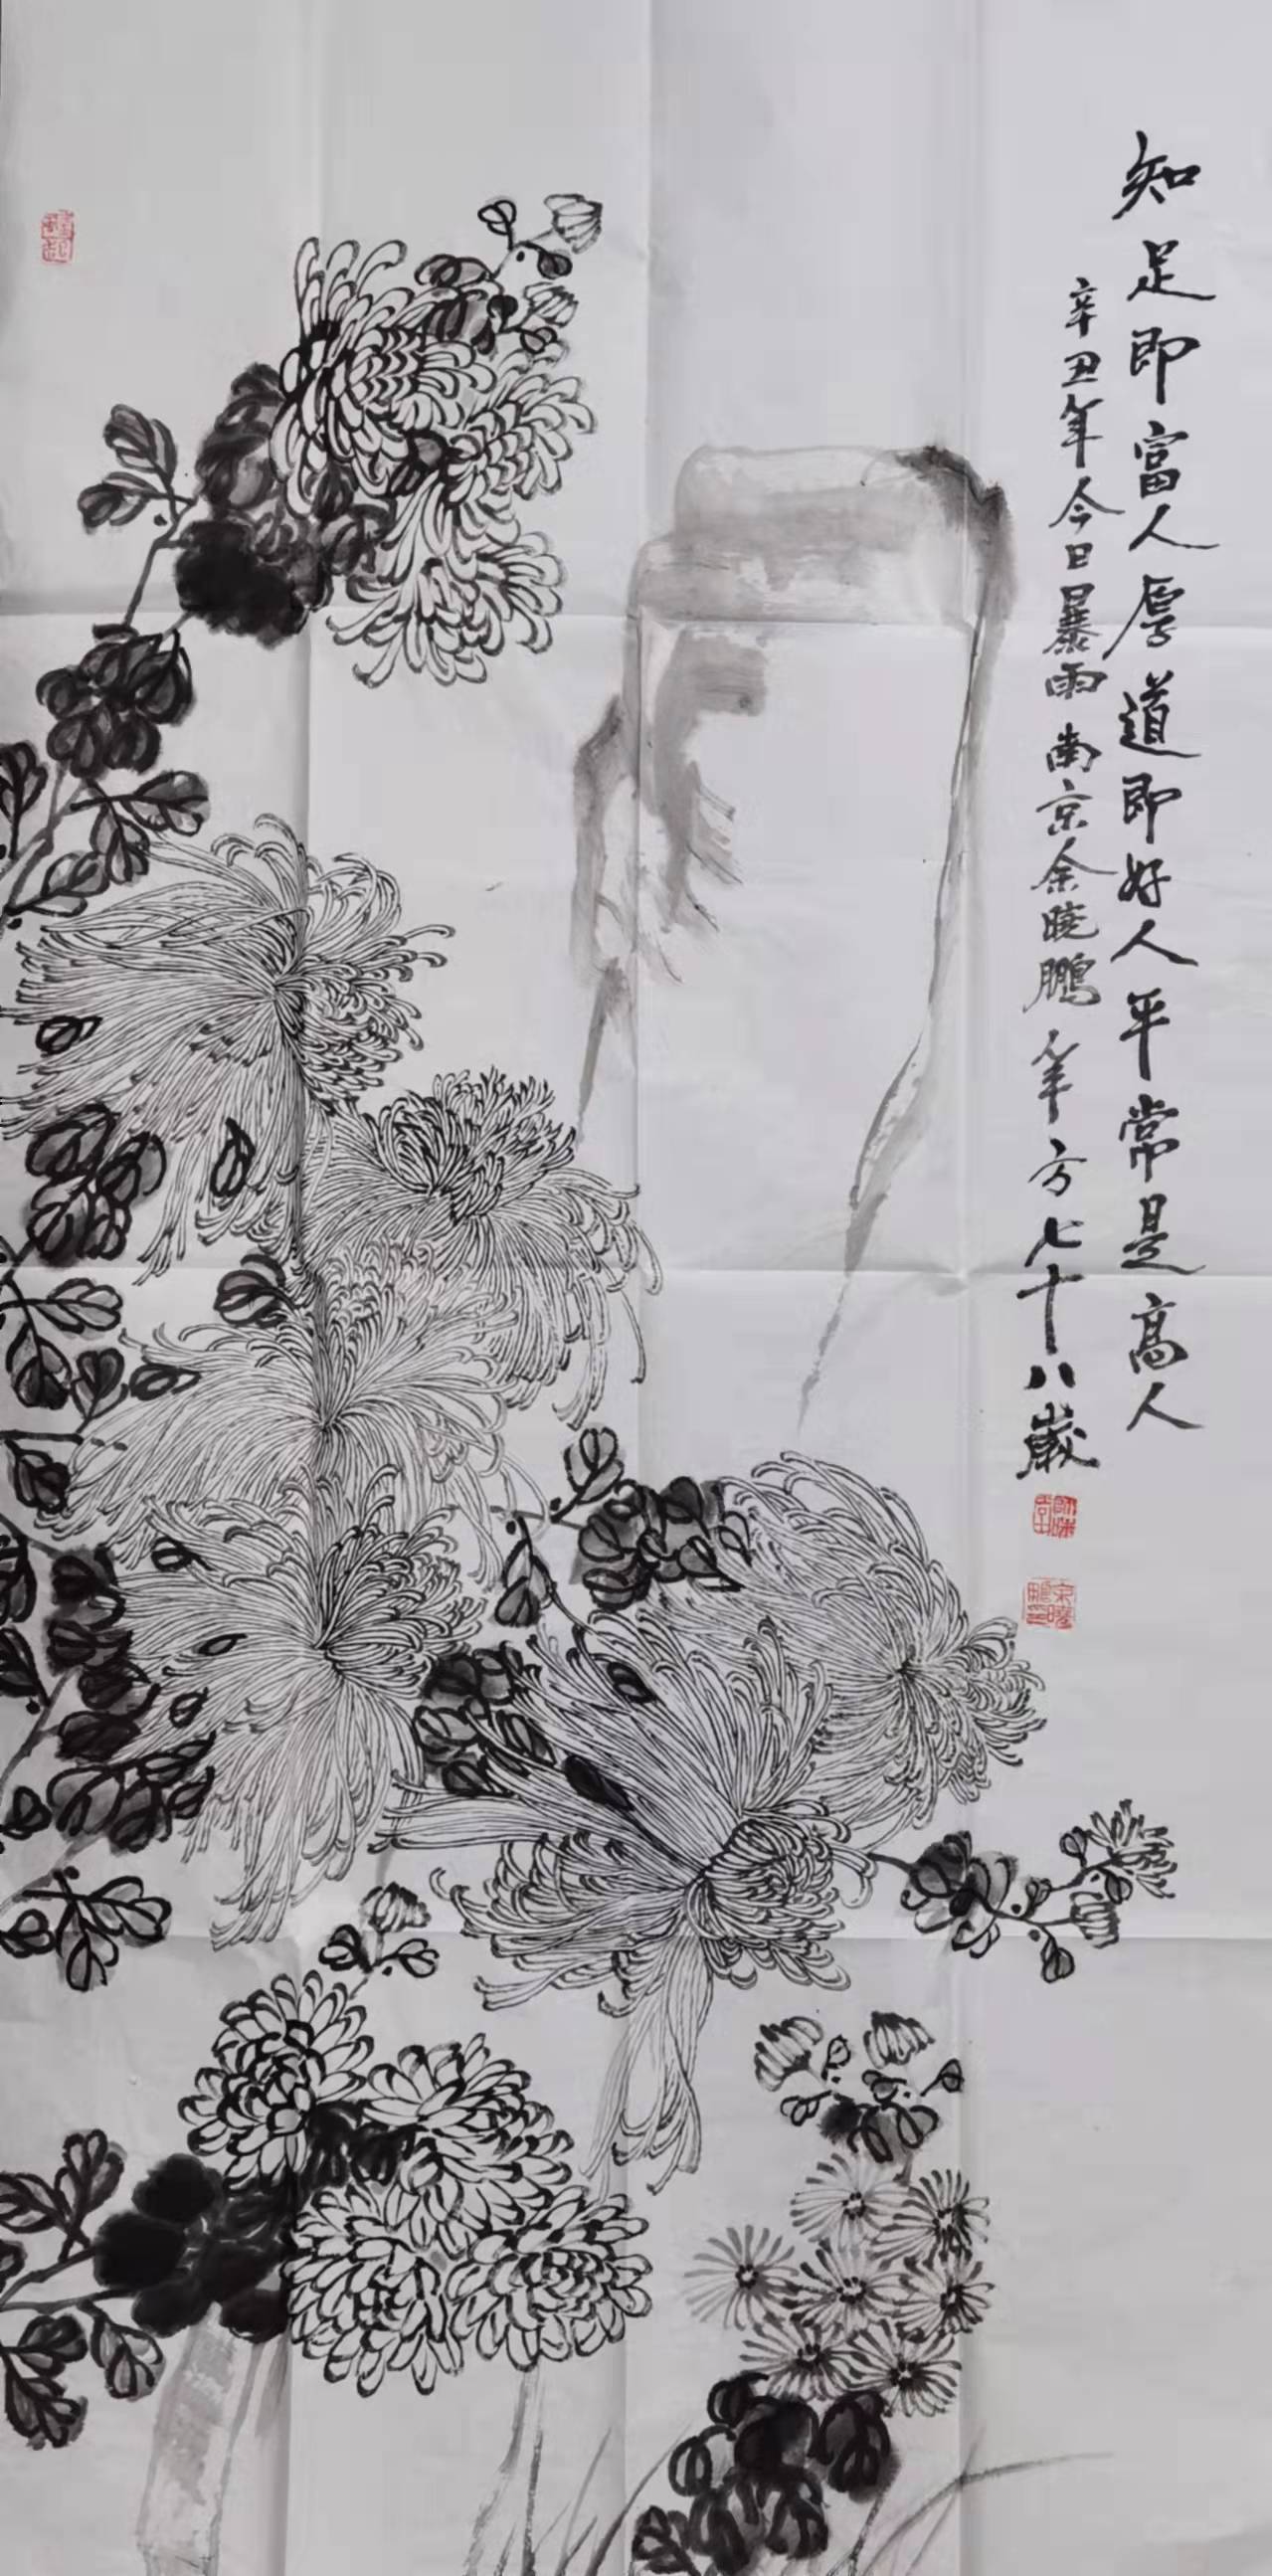 知足即富人厚道即好人平常是高人
辛丑年今日暴雨南京余晓鹏年方七十八歲